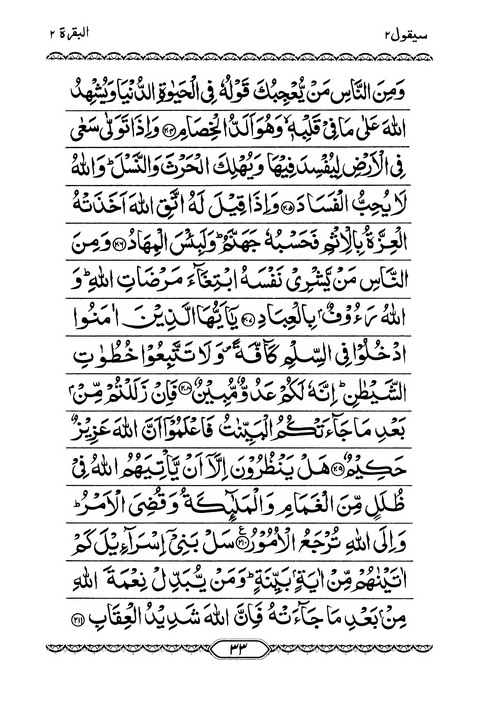 سيقول ٢ البقرة ٢
وَمِنَ النَّاسِ مَنْ يُّعْجِبُكَ قَوْلُهٗ فِي الْحَيٰوةِ الدُّنْيَا وَيُشْهِدُ
اللّٰهَ عَلٰى مَا فِيْ قَلْبِهٖ ۙ وَهُوَ اَلَدُّ الْخِصَامِ ﴿٢٠٤﴾ وَاِذَا تَوَلّٰى سَعٰى
فِي الْاَرْضِ لِيُفْسِدَ فِيْهَا وَيُهْلِكَ الْحَرْثَ وَالنَّسْلَ ؕ وَاللّٰهُ
لَا يُحِبُّ الْفَسَادَ ﴿٢٠٥﴾ وَاِذَا قِيْلَ لَهُ اتَّقِ اللّٰهَ اَخَذَتْهُ
الْعِزَّةُ بِالْاِثْمِ فَحَسْبُهٗ جَهَنَّمُ ؕ وَلَبِئْسَ الْمِهَادُ ﴿٢٠٦﴾ وَمِنَ
النَّاسِ مَنْ يَّشْرِيْ نَفْسَهُ ابْتِغَآءَ مَرْضَاتِ اللّٰهِ ؕ وَ
اللّٰهُ رَءُوْفٌۢ بِالْعِبَادِ ﴿٢٠٧﴾ يٰۤاَيُّهَا الَّذِيْنَ اٰمَنُوا
ادْخُلُوْا فِي السِّلْمِ كَآفَّةً ۪ وَلَا تَتَّبِعُوْا خُطُوٰتِ
الشَّيْطٰنِ ؕ اِنَّهٗ لَكُمْ عَدُوٌّ مُّبِيْنٌ ﴿٢٠٨﴾ فَاِنْ زَلَلْتُمْ مِّنْۢ
بَعْدِ مَا جَآءَتْكُمُ الْبَيِّنٰتُ فَاعْلَمُوْۤا اَنَّ اللّٰهَ عَزِيْزٌ
حَكِيْمٌ ﴿٢٠٩﴾ هَلْ يَنْظُرُوْنَ اِلَّاۤ اَنْ يَّاْتِيَهُمُ اللّٰهُ فِيْ
ظُلَلٍ مِّنَ الْغَمَامِ وَالْمَلٰٓئِكَةُ وَقُضِيَ الْاَمْرُ ؕ
وَاِلَى اللّٰهِ تُرْجَعُ الْاُمُوْرُ ﴿٢١٠﴾ ع سَلْ بَنِيْۤ اِسْرَآءِيْلَ كَمْ
اٰتَيْنٰهُمْ مِّنْ اٰيَةٍۭ بَيِّنَةٍ ؕ وَمَنْ يُّبَدِّلْ نِعْمَةَ اللّٰهِ
مِنْۢ بَعْدِ مَا جَآءَتْهُ فَاِنَّ اللّٰهَ شَدِيْدُ الْعِقَابِ ﴿٢١١﴾
٣٣